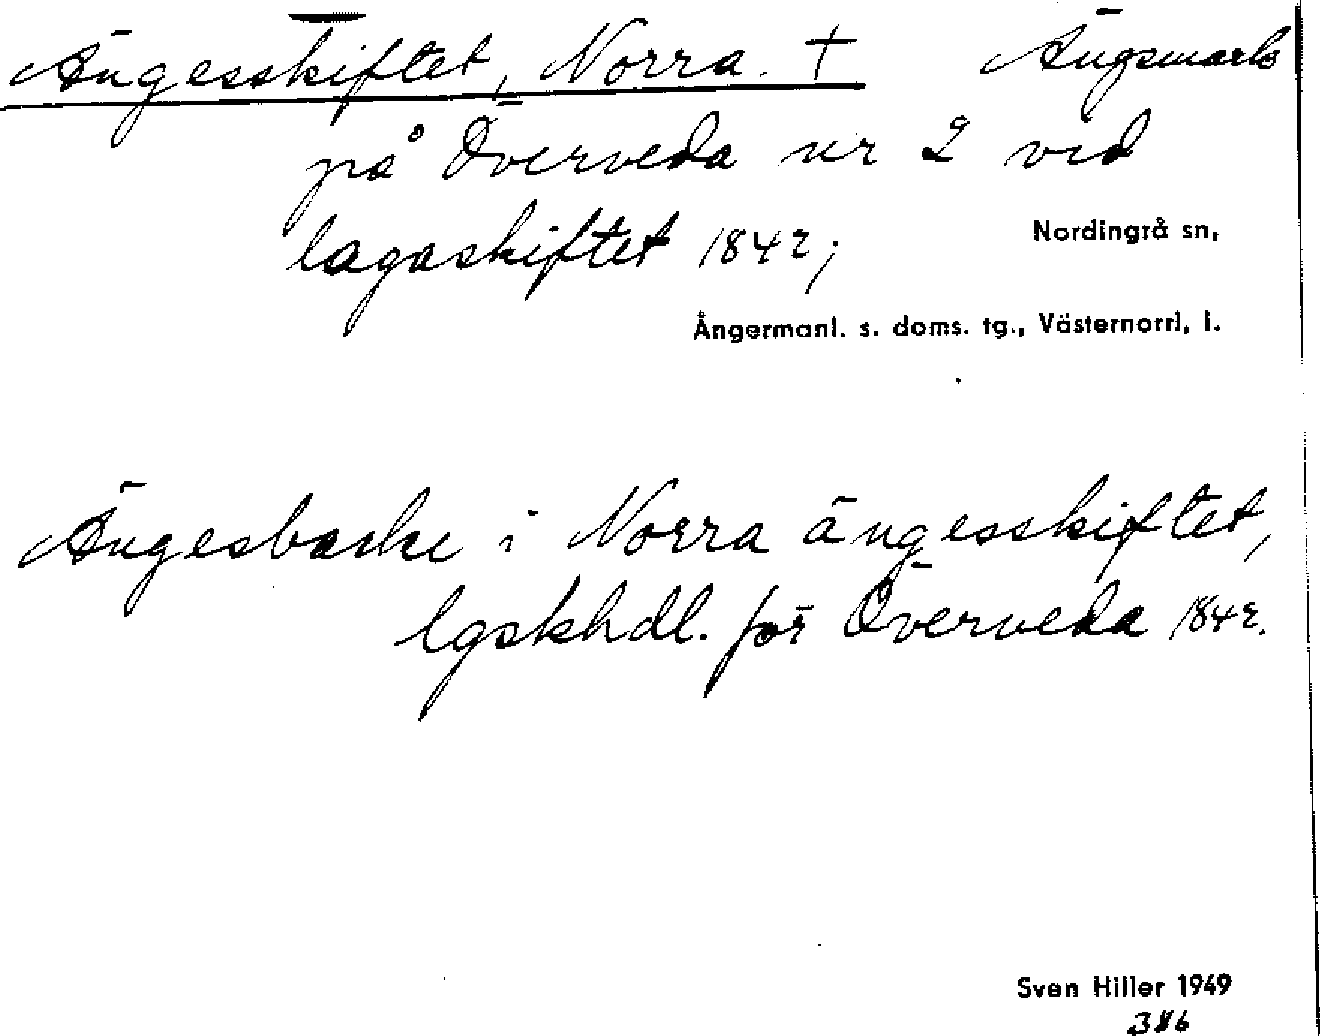 Ängesskiftet, Norra. † Ängsmark
på Överveda nr 2 vid
lagaskiftet 1842;
Nordingrå sn,
Ångermanl. s. doms. tg., Västernorrl. l.
Ängesbacke i Norra ängesskiftet,
lgskhdl. för Överveda 1842.
Sven Hiller 1949